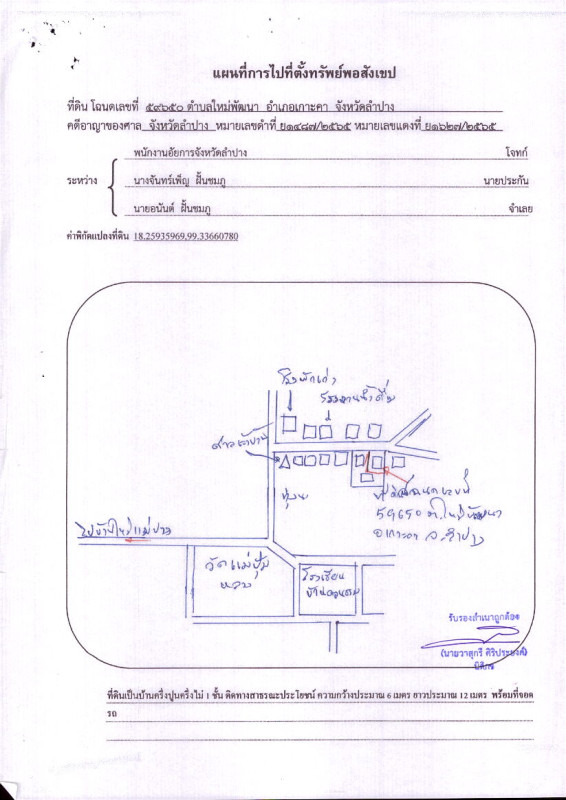 แผนที่การไปที่ตั้งทรัพย์พอสังเขป
ที่ดิน โฉนดเลขที่ ๕๙๖๕๐ ตำบลใหม่พัฒนา อำเภอเกาะคา จังหวัดลำปาง
คดีอาญาของศาล จังหวัดลำปาง หมายเลขดำที่ ย๑๔๘๗/๒๕๖๕ หมายเลขแดงที่ ย๑๖๒๗/๒๕๖๕
พนักงานอัยการจังหวัดลำปาง โจทก์
ระหว่าง นางจันทร์เพ็ญ ฝั้นชมภู นายประกัน
นายอนันต์ ฝั้นชมภู จำเลย
ค่าพิกัดแปลงที่ดิน 18.25935969,99.33660780
โรงพักเก่า
โรงงานน้ำดื่ม
ทุ่งนา
ที่ดินโฉนดเลขที่
59650 ต.ใหม่พัฒนา
อ.เกาะคา จ.ลำปาง
วัดแม่ปุ้ม
หลวง
โรงเรียน
รับรองสำเนาถูกต้อง
นิติกร
ที่ดินเป็นบ้านครึ่งปูนครึ่งไม้ 1 ชั้น ติดทางสาธารณะประโยชน์ ความกว้างประมาณ 6 เมตร ยาวประมาณ 12 เมตร พร้อมที่จอด
รถ